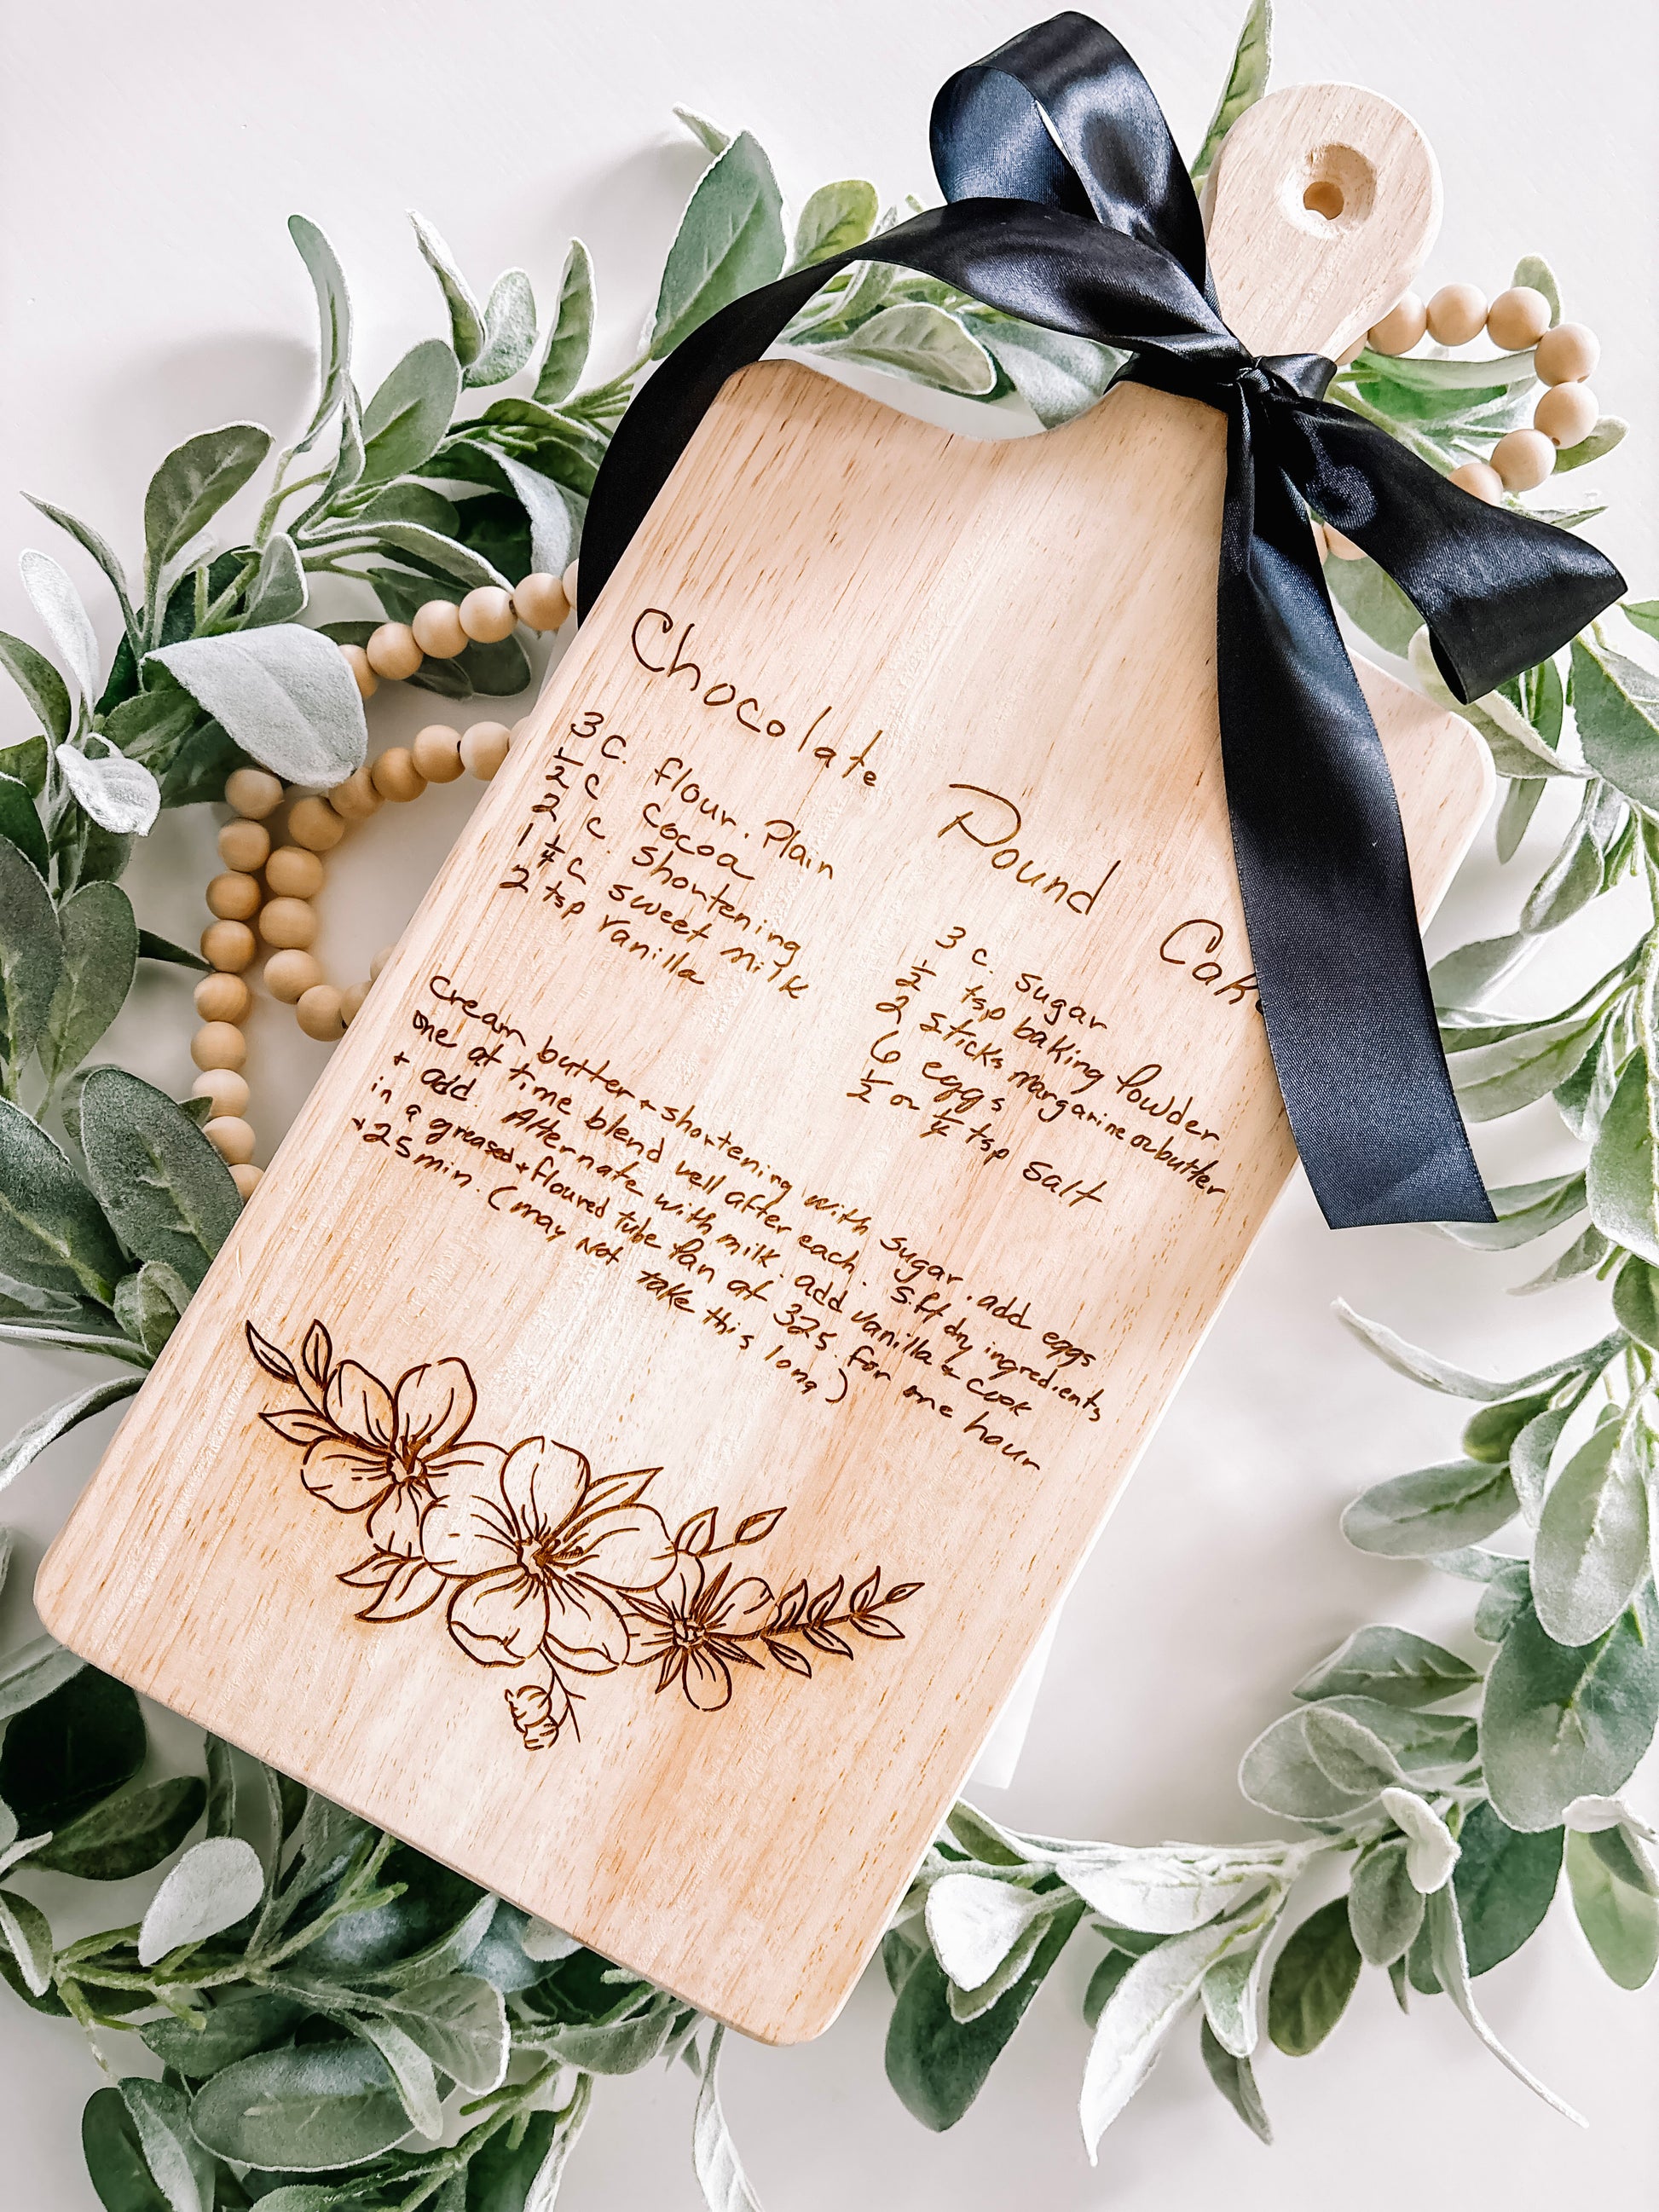 Chocolate Pound Cake
3 C. flour. Plain
1/2 C Cocoa
2 c shortening
1 1/4 C sweet milk
2 tsp vanilla
3 c. sugar
1/2 tsp baking Powder
2 sticks margarine or butter
6 eggs
1/2 or 1/4 tsp salt
Cream butter + shortening with sugar. add eggs
one at time blend well after each. Sift dry ingredients
+ add. Alternate with milk. add vanilla & cook
in a greased + floured tube Pan at 325 for one hour
+ 25 min. (may Not take this long)